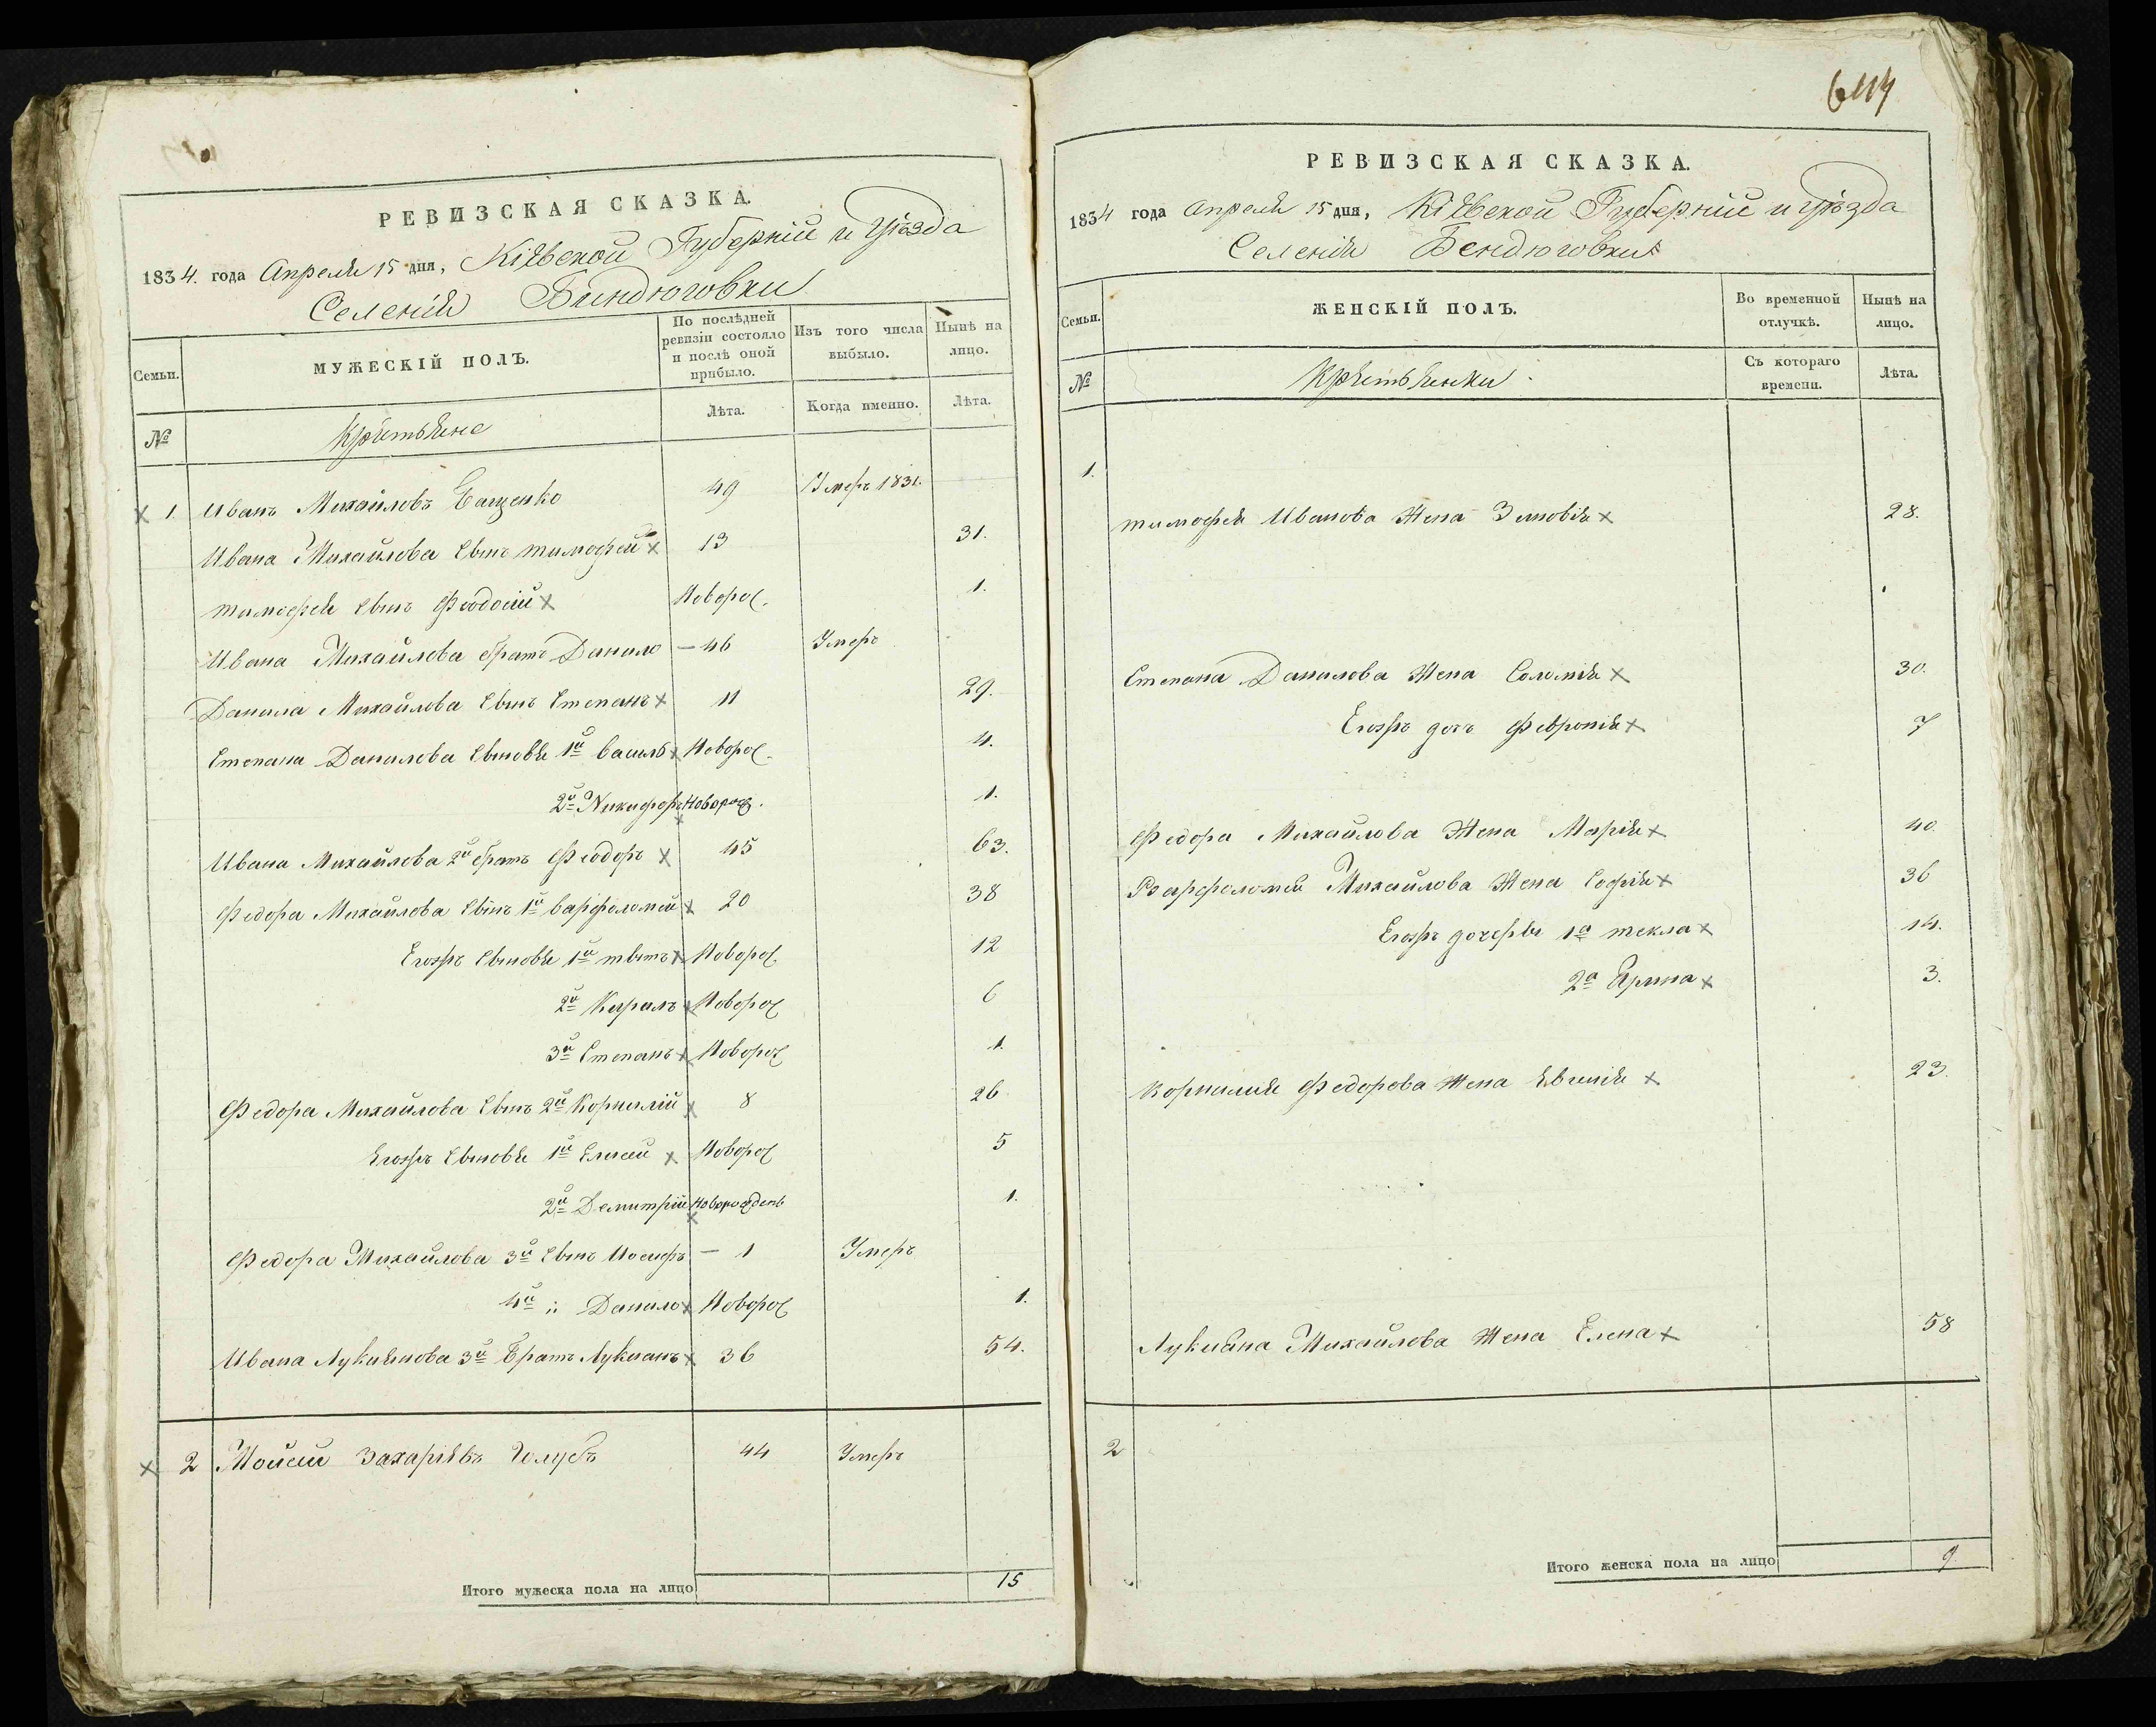 РЕВИЗСКАЯ СКАЗКА.
1834. года Апреля 15 дня, Кіевской Губерніи и Уѣзда
Селенія Биндюговки
Семьи.
МУЖЕСКІЙ ПОЛЪ.
По послѣдней ревизіи состояло и послѣ оной прибыло.
Изъ того числа выбыло.
Нынѣ на лицо.
№
Крѣстьяне
Лѣта.
Когда именно.
Лѣта.
х 1. Иванъ Михайловъ 49 Умеръ 1831.
Ивана Михайлова сынъ тимофей х 13 31.
тимофея сынъ Феодосій х Новорос. 1.
Ивана Михайлова братъ Данило — 46 Умеръ
Данила Михайлова сынъ Степанъ х 11 29.
Степана Данилова сыновя 1й василь х Новорос. 4.
2й Никифоръ х Новорос. 1.
Ивана Михайлова 2й братъ Феодоръ х 45 63.
Федора Михайлова сынъ 1й варфоломей х 20 38
Егожъ сыновя 1й титъ х Новорос. 12
2й Кирилъ х Новорос 6
3й Степанъ х Новорос 1.
Федора Михайлова сынъ 2й Корнилій х 8 26
Егожъ сыновя 1й Елисей х Новорос 5
2й Демитрій х Новорожденъ 1.
Федора Михайлова 3й сынъ Иосифъ — 1 Умеръ
4й " Данило х Новорос 1.
Ивана Лукиянова 3й Братъ Лукианъ х 36 54.
х 2 Мойсей Захаріевъ Голубъ 44 Умеръ
Итого мужеска пола на лицо 15
РЕВИЗСКАЯ СКАЗКА.
1834 года Апреля 15 дня, Кіевской Губерніи и Уѣзда
Селенія Бендюговки
Семьи.
ЖЕНСКІЙ ПОЛЪ.
Во временной отлучкѣ.
Нынѣ на лицо.
№
Крѣстьянки
Съ котораго времени.
Лѣта.
1.
тимофея Иванова Жена Зиновія х 28.
Степана Данилова Жена Соломія х 30.
Егожъ дочь Февронія х 7
Федора Михайлова Жена Марія х 40.
Варфоломея Михайлова Жена Софія х 36
Егожъ дочеры 1а текла х 14.
2а Ярина х 3.
Корнилия Федорова Жена Явгенія х 23.
Лукиана Михайлова Жена Елена х 58
2
Итого женска пола на лицо 9